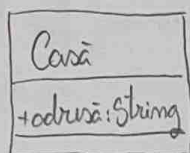 Casă
+adresă:String